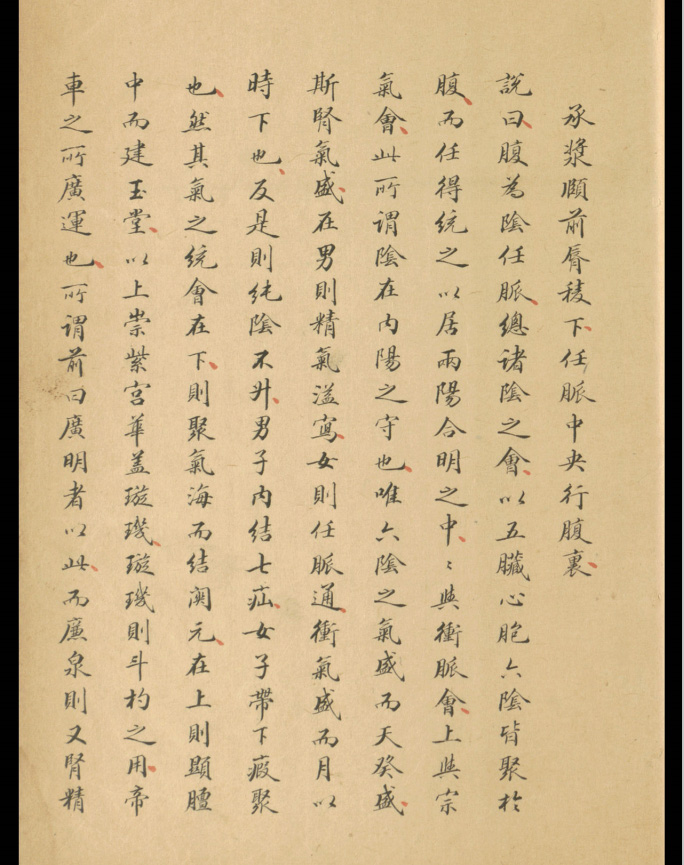 承漿頤前脣稜下任脈中央行腹裏
說曰腹為陰任脈總諸陰之會以五臟心胞六陰皆聚於
腹而任得統之以居兩陽合明之中〻與衝脈會上與宗
氣會此所謂陰在內陽之守也唯六陰之氣盛而天癸盛
斯腎氣盛在男則精氣溢寫女則任脈通衝氣盛而月以
時下也反是則純陰不升男子內結七疝女子帶下瘕聚
也然其氣之統會在下則聚氣海而結関元在上則顯膻
中而建玉堂以上崇紫宮華盖璇璣璇璣則斗杓之用帝
車之所廣運也所謂前曰廣明者以此而廉泉則又腎精